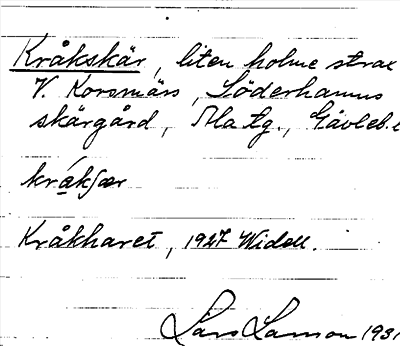 Kråkskär, liten holme strax
V. Korsnäs, Söderhamns
skärgård, Ala tg., Gävleb.
kråkſær
Kråkharet, 1927 Widell.
Lars Larson 1931